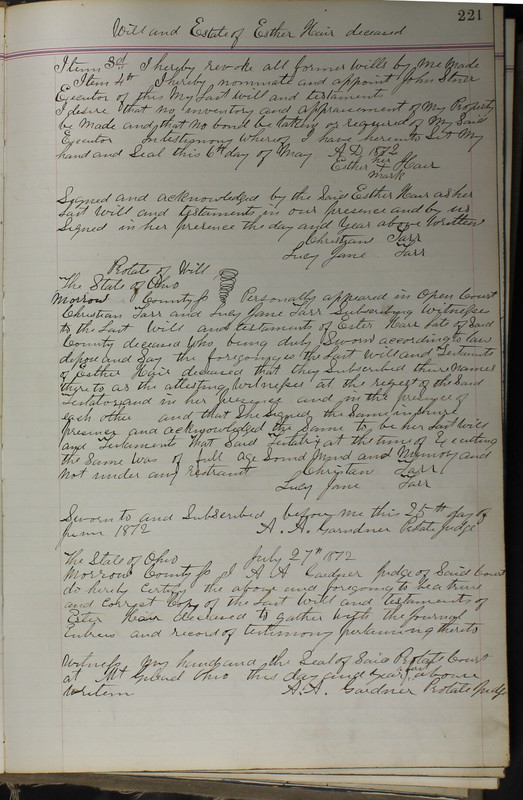 221
Will and Estate of Esther Hair deceased
Item 3d I hereby revoke all former wills by Me Made
Item 4th I hereby nominate and appoint John Stner
Executor of this My Last Will and testament
I desire that no inventory and appraisement of My Property
be Made and that No bond be taken or required of My Said
Executor In testimony Whereof I have hereunto Set My
hand and Seal this 6th day of May A.D. 1872
Esther her X mark Hair
Signed and acknowledged by the Said Esther Hair as her
Last Will and testaments in our presence and by us
Signed in her presence the day and Year above Written
Christian Tarr
Lucy Jane Tarr
Probate of Will
The State of Ohio
Morrow County ss Personally appeared in Open Court
Christian Tarr and Lucy Jane Tarr Subscribing Witnesses
to the Last Will and testaments of Ester Hair Late of Said
County deceased who being duly Sworn according to law
depose and Say the foregoing is the Last Will and Testaments
of Esther Hair deceased that they Subscribed there Names
thereto as the attesting Witnesses at the request of the Said
Testator and in her presence and in the presence of
each other and that She Signed the Same in there
presence and acknowledged the Same to be her Last Will
and Testaments that Said Testatrix at the time of Executing
the Same was of full age Sound Mind and Memory and
Not under any restraint Christian Tarr
Lucy Jane Tarr
Sworn to and Subscribed before me this 25th day of
June 1872 A. A. Gardner Probate Judge
The State of Ohio July 27th 1872
Morrow County ss I A A Gardner Judge of Said Court
do hereby Certify the above and forgoing to be a true
and correct Copy of the Last Will and testaments of
Ester Hair deceased to gather with the Journal
Entries and record of testimony pertaining thereto
Witness My hand and the Seal of Said Probate Court
at Mt Gilead Ohio this day and Year last above
Writen A. A. Gardner Probate Judge